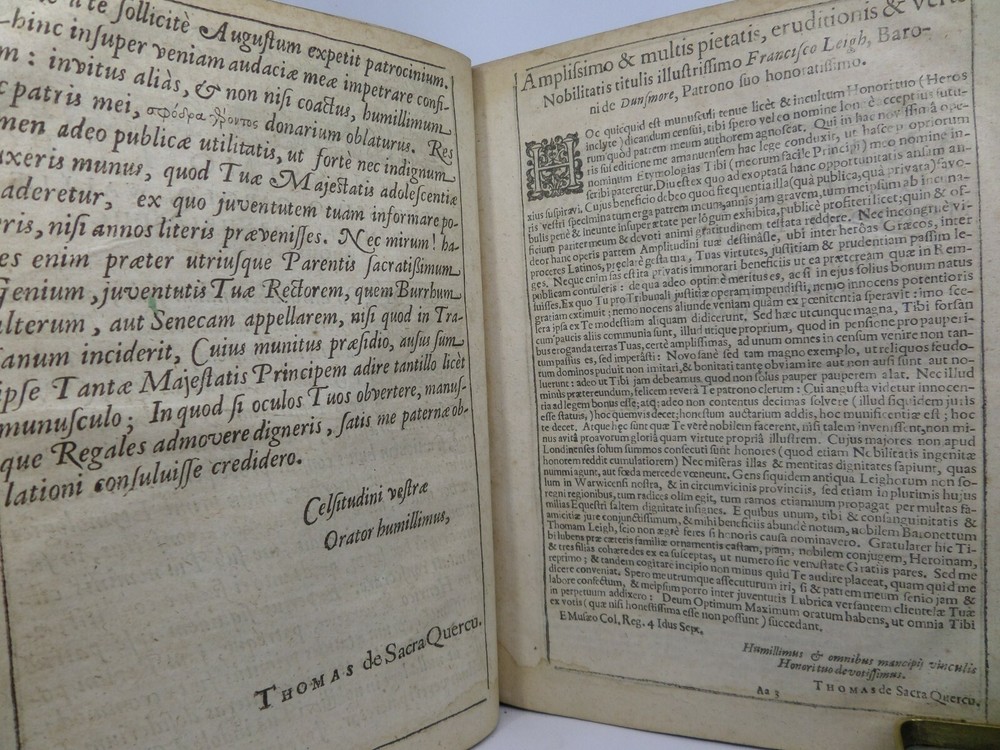 te sollicitè Augustum expetit patrocinium.
hinc insuper veniam audaciæ meæ impetrare confi-
m : invitus aliàs, & non nisi coactus, humillimum
patris mei, σφόδρα γέροντος donarium oblaturus. Res
men adeo publicæ utilitatis, ut fortè nec indignum
uxeris munus, quod Tuæ Majestatis adolescentiæ
aderetur, ex quo juventutem tuam informare po-
ris, nisi annos literis prævenisses. Nec mirum! ha-
es enim præter utriusque Parentis sacratissimum
Genium, juventutis Tuæ Rectorem, quem Burrhum
alterum, aut Senecam appellarem, nisi quod in Tra-
janum inciderit, Cuius munitus præsidio, ausus sum
ipse Tantæ Majestatis Principem adire tantillo licèt
munusculo; In quod si oculos Tuos obvertere, manus-
que Regales admovere digneris, satis me paternæ ob-
lationi consuluisse credidero.
Celsitudini vestræ
Orator humillimus,
THOMAS de Sacra Quercu.
Amplissimo & multis pietatis, eruditionis &
Nobilitatis titulis illustrissimo Francisco Leigh, Baro-
ni de Dunsmore, Patrono suo honoratissimo.
HOc quicquid est munusculi tenue licèt & incultum Honori tuo (Heros
inclyte) dicandum censui, tibi spero vel eo nomine longè acceptius futu-
rum quod patrem meum authorem agnoscat. Qui in hac novissimâ ope-
ris sui editione me amanuensem hac lege conduxit, ut hasce
nominum Etymologias Tibi (meorum facilè Principi) meo nomine in-
scribi pateretur. Diu est ex quo ad exoptatà hanc opportunitatis ansam an-
xius suspiravi. Cujus beneficio debeo quod frequentia illa (quà publica, quà privata) favo-
ris vestri specimina tum erga patrem meum, annis jam gravem, tum meipsum ab incuna-
bulis penè & ineunte insuper ætate per lôgum exhibita, publicè profiteri licet; quin & of-
ficium pariter meum & devoti animi gratitudinem testata reddere. Nec incongruè vi-
deor hanc operis partem Amplitudini tuæ destinâsse, ubi inter heröas Græcos, inter
proceres Latinos, præclarè gesta tua, Tuas virtutes, justitiam & prudentiam passim le-
ges. Neque enim fas est ita privatis immorari beneficiis ut ea prætereàm quæ in Rem-
publicam contuleris: de qua adeo optimè meritus es, ac si in ejus solius bonum natus
fuisses. Ex quo Tu pro Tribunali justitiæ operam impendisti, nemo innocens potentioris
gratiam extimuit; nemo nocens aliunde veniam quàm ex pœnitentia speravit: imo sce-
lera ipsa ex Te modestiam aliquam didicerunt. Sed hæc utcunque magna, Tibi forsan
cum paucis aliis communia sunt, illud utique proprium, quod in pensione pro pauperi-
bus eroganda terras Tuas, certè amplissimas, ad unum omnes in censum venire non tan-
tum passus es, sed imperâsti: Novo sanè sed tam magno exemplo, ut reliquos feudo-
tum dominos puduit non imitari, & bonitati tantæ obviam ire aut non ausi sunt aut no-
luerunt: adeo ut Tibi jam debeamus quod non solus pauper pauperem alat. Nec illud
minus prætereundum, felicem reverà Te patrono clerum: Cui angusta videtur innocen-
tia ad legem bonus esse; atque adeo non contentus decimas solvere (illud siquidem juris
esse statuis,) hoc quemvis decet; honestum auctarium addis, hoc munificentiæ est; hoc
te decet. Atque hęc sunt quæ Te verè nobilem facerent, nisi talem invenissent, non mi-
nus avitâ proavorum gloriâ quam virtute propriâ illustrem. Cujus majores non apud
Londinenses solùm summos consecuti sunt honores (quod etiam Nobilitatis ingenitæ
honorem reddit cumulatiorem) Nec miseras illas & mentitas dignitates sapiunt, quas
nummi agunt, aut fœda mercede vœneunt. Gens siquidem antiqua Leighorum non so-
lum in Warwicensi nostra, & in circumvicinis provinciis, sed etiam in plurimis hujus
regni regionibus, tum radices olim egit, tum ramos etiamnum propagat per multas fa-
milias Equestri saltem dignitate insignes. E quibus unum, tibi & consanguinitatis &
amicitiæ jure conjunctissimum, & mihi beneficiis abundè notum, nobilem Baronettum
Thomam Leigh, scio non ægrè feres si honoris causa nominavero. Gratularer hic Ti-
bi lubens præ cæteris familiæ ornamentis castam, piam, nobilem conjugem, Heroinam,
& tres filias cohæredes ex ea susceptas, ut numero sic venustate Gratiis pares. Sed me
reptimo; & tandem cogitare incipio non minus quid Te audire placeat, quam quid me
dicere conveniat. Spero me utrumque assecuturum iri, si & patrem meum senio jam &
labore confectum, & meipsum porro inter juventutis Lubrica versantem clientelæ Tuæ
in perpetuum addixero: Deum Optimum Maximum oratum habens, ut omnia Tibi
ex votis (quæ nisi honestissima esse non possunt) succedant.
E Museo Col. Reg. 4 Idus Sept.
Humillimus & omnibus mancipii vinculis
Honori tuo devotissimus.
THOMAS de Sacra Quercu.
Aa 3